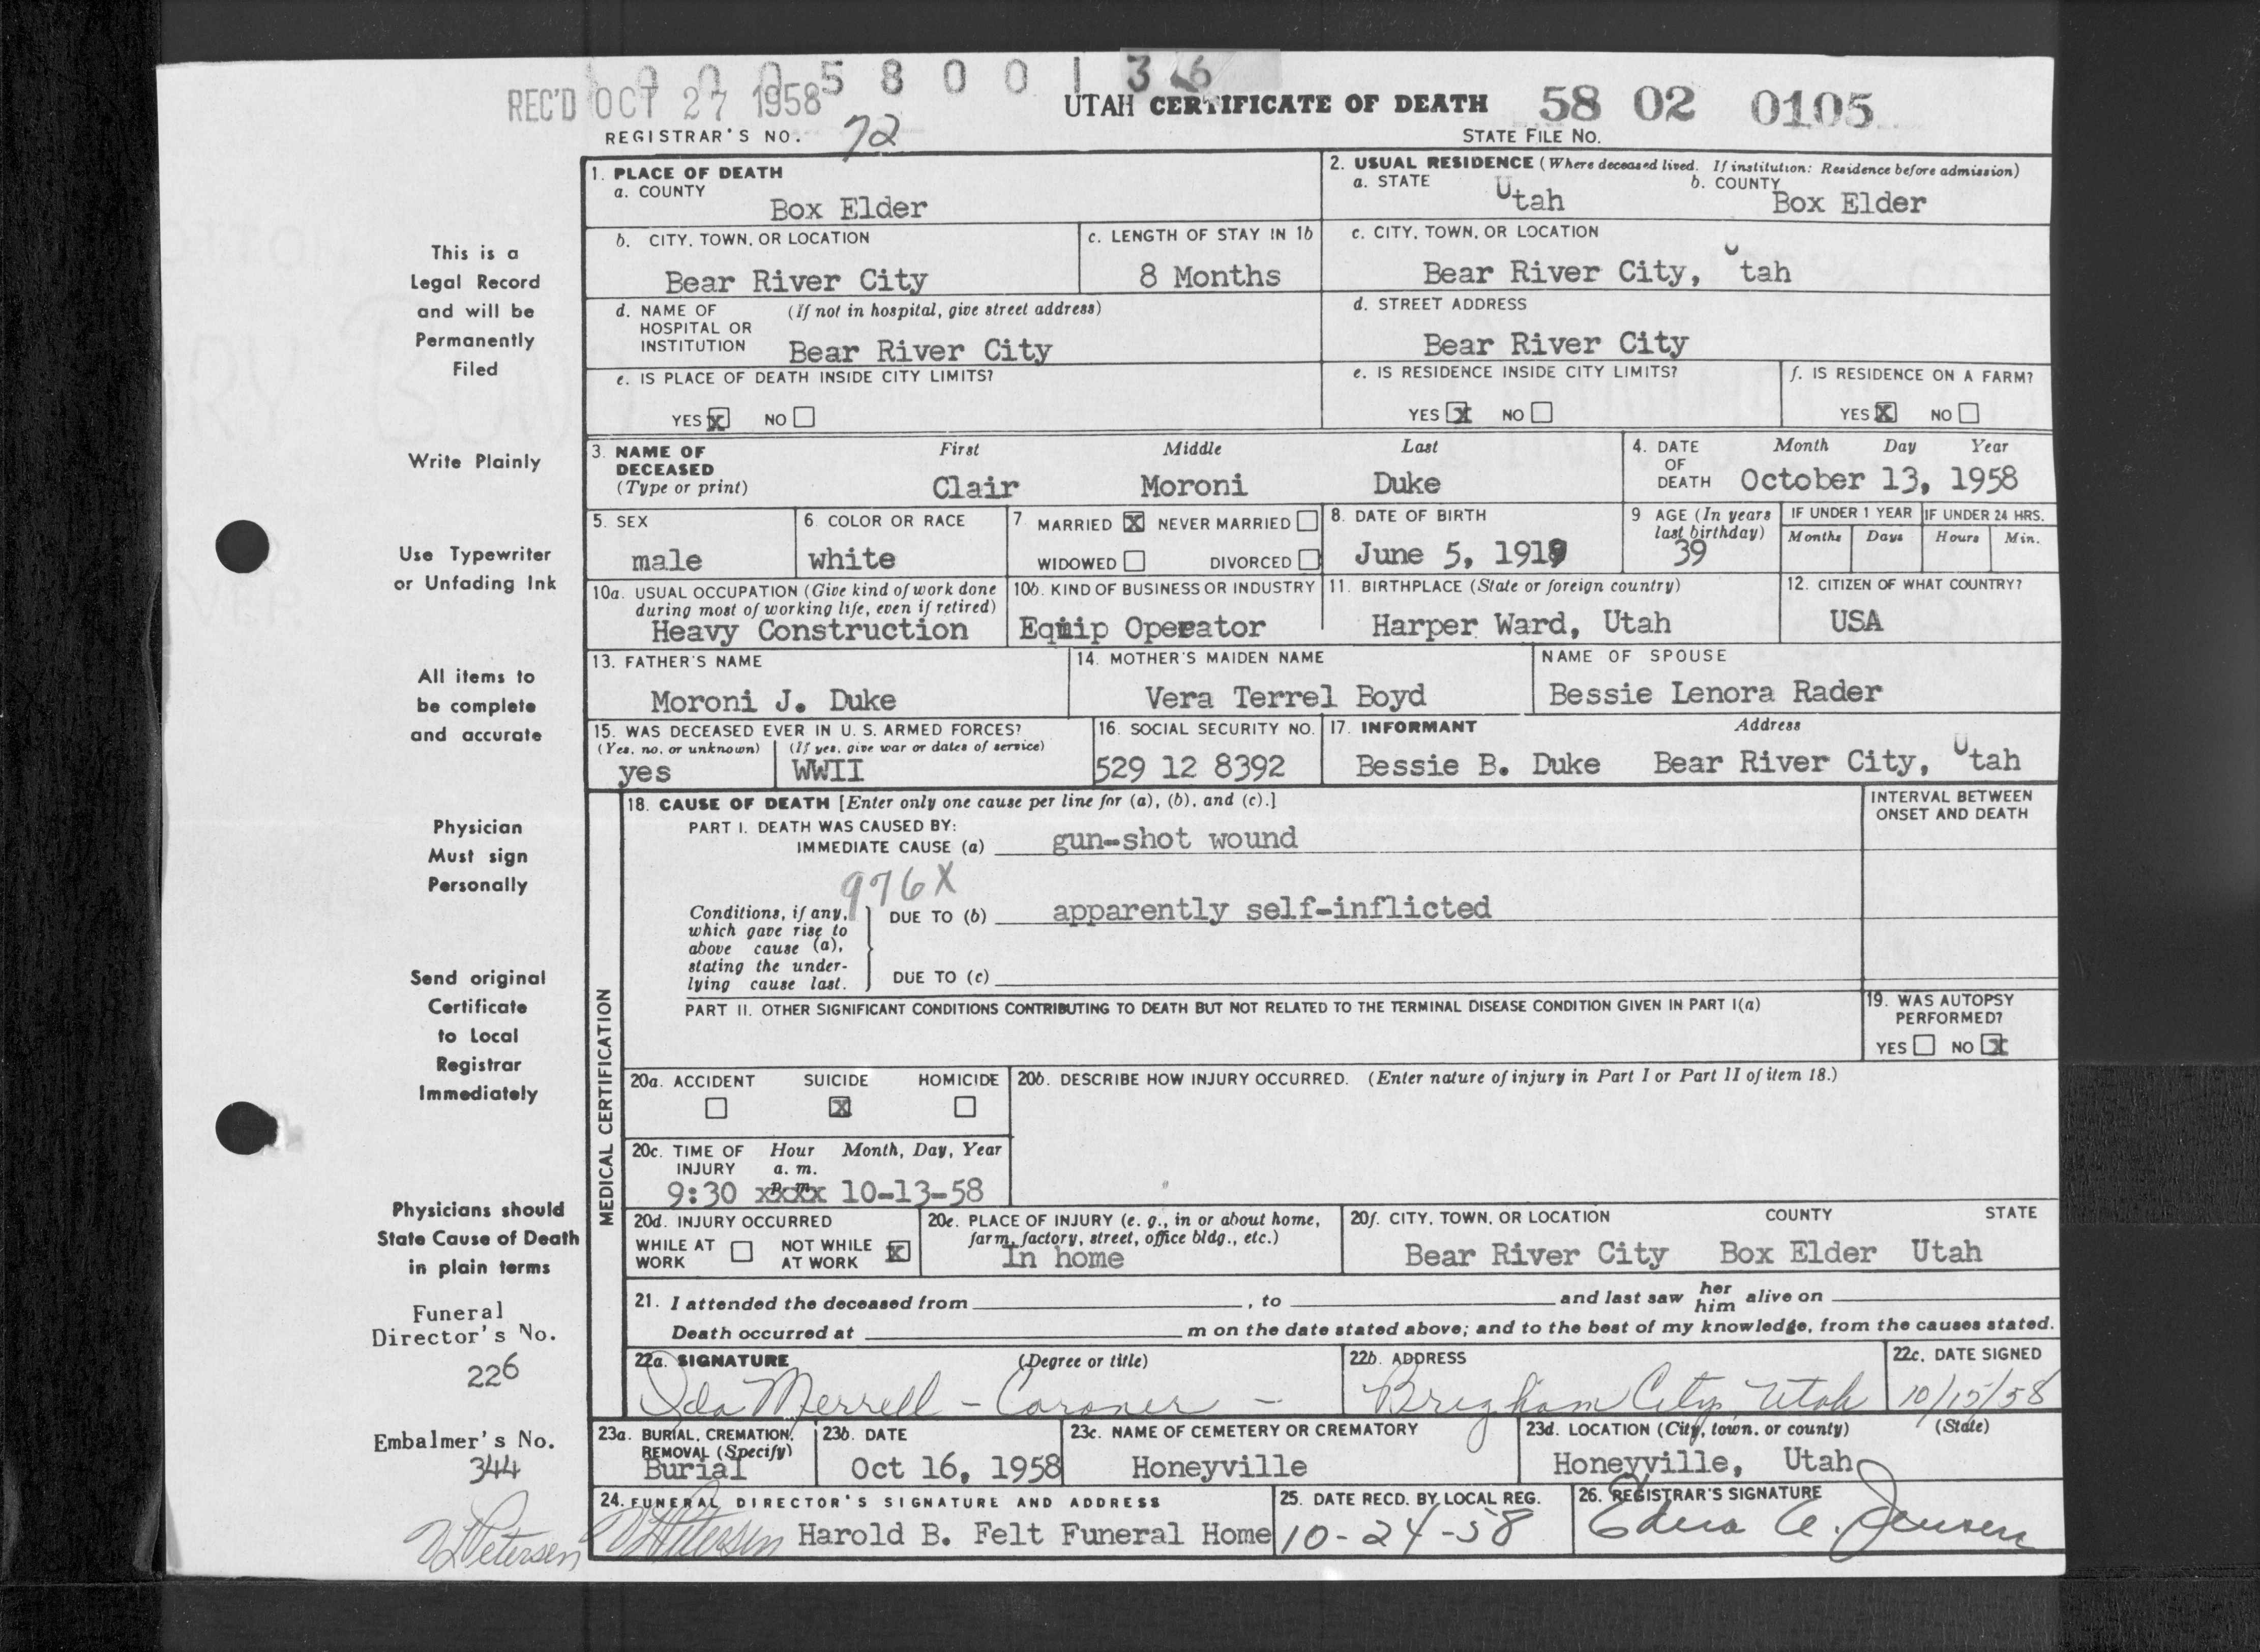 0 0 0 5 8 0 0 1 3 6
REC'D OCT 27 1958
UTAH CERTIFICATE OF DEATH 58 02 0105
REGISTRAR'S NO. 72
STATE FILE NO.
This is a
Legal Record
and will be
Permanently
Filed
Write Plainly
Use Typewriter
or Unfading Ink
All items to
be complete
and accurate
Physician
Must sign
Personally
Send original
Certificate
to Local
Registrar
Immediately
Physicians should
State Cause of Death
in plain terms
Funeral
Director's No.
226
Embalmer's No.
344
1. PLACE OF DEATH
a. COUNTY
Box Elder
2. USUAL RESIDENCE (Where deceased lived. If institution: Residence before admission)
a. STATE Utah b. COUNTY Box Elder
b. CITY, TOWN, OR LOCATION
Bear River City
c. LENGTH OF STAY IN 1b
8 Months
c. CITY, TOWN, OR LOCATION
Bear River City, Utah
d. NAME OF HOSPITAL OR INSTITUTION (If not in hospital, give street address)
Bear River City
d. STREET ADDRESS
Bear River City
e. IS PLACE OF DEATH INSIDE CITY LIMITS?
YES X NO
e. IS RESIDENCE INSIDE CITY LIMITS?
YES X NO
f. IS RESIDENCE ON A FARM?
YES X NO
3. NAME OF DECEASED (Type or print)
First Middle Last
Clair Moroni Duke
4. DATE OF DEATH Month Day Year
October 13, 1958
5. SEX
male
6. COLOR OR RACE
white
7. MARRIED X NEVER MARRIED
WIDOWED DIVORCED
8. DATE OF BIRTH
June 5, 1919
9 AGE (In years last birthday)
39
IF UNDER 1 YEAR
Months Days
IF UNDER 24 HRS.
Hours Min.
10a. USUAL OCCUPATION (Give kind of work done during most of working life, even if retired)
Heavy Construction
10b. KIND OF BUSINESS OR INDUSTRY
Equip Operator
11. BIRTHPLACE (State or foreign country)
Harper Ward, Utah
12. CITIZEN OF WHAT COUNTRY?
USA
13. FATHER'S NAME
Moroni J. Duke
14. MOTHER'S MAIDEN NAME
Vera Terrel Boyd
NAME OF SPOUSE
Bessie Lenora Rader
15. WAS DECEASED EVER IN U. S. ARMED FORCES?
(Yes, no, or unknown) (If yes, give war or dates of service)
yes WWII
16. SOCIAL SECURITY NO.
529 12 8392
17. INFORMANT Address
Bessie B. Duke Bear River City, Utah
MEDICAL CERTIFICATION
18. CAUSE OF DEATH [Enter only one cause per line for (a), (b), and (c).]
INTERVAL BETWEEN ONSET AND DEATH
PART I. DEATH WAS CAUSED BY:
IMMEDIATE CAUSE (a) gun-shot wound
976X
Conditions, if any, which gave rise to above cause (a), stating the underlying cause last.
DUE TO (b) apparently self-inflicted
DUE TO (c)
PART II. OTHER SIGNIFICANT CONDITIONS CONTRIBUTING TO DEATH BUT NOT RELATED TO THE TERMINAL DISEASE CONDITION GIVEN IN PART I(a)
19. WAS AUTOPSY PERFORMED?
YES NO X
20a. ACCIDENT SUICIDE HOMICIDE
X
20b. DESCRIBE HOW INJURY OCCURRED. (Enter nature of injury in Part I or Part II of item 18.)
20c. TIME OF INJURY Hour Month, Day, Year
a. m.
p. m.
9:30 xxxx 10-13-58
20d. INJURY OCCURRED
WHILE AT WORK NOT WHILE AT WORK X
20e. PLACE OF INJURY (e. g., in or about home, farm, factory, street, office bldg., etc.)
In home
20f. CITY, TOWN, OR LOCATION COUNTY STATE
Bear River City Box Elder Utah
21. I attended the deceased from , to and last saw her him alive on
Death occurred at m on the date stated above; and to the best of my knowledge, from the causes stated.
22a. SIGNATURE (Degree or title)
Ida Merrell - Coroner -
22b. ADDRESS
Brigham City, Utah
22c. DATE SIGNED
10/15/58
23a. BURIAL, CREMATION, REMOVAL (Specify)
Burial
23b. DATE
Oct 16, 1958
23c. NAME OF CEMETERY OR CREMATORY
Honeyville
23d. LOCATION (City, town, or county) (State)
Honeyville, Utah
24. FUNERAL DIRECTOR'S SIGNATURE AND ADDRESS
Petersen Petersen Harold B. Felt Funeral Home
25. DATE RECD. BY LOCAL REG.
10-24-58
26. REGISTRAR'S SIGNATURE
Edna A. Jensen